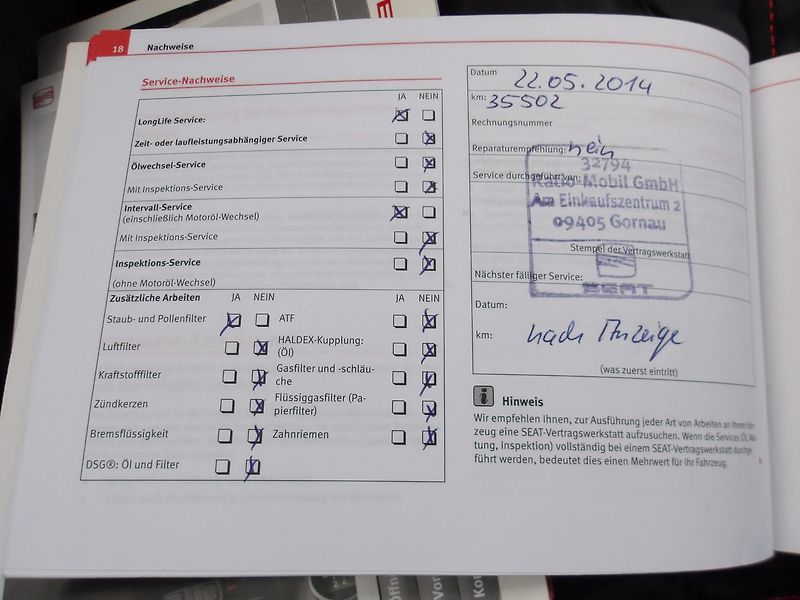 18 Nachweise
Service-Nachweise
JA NEIN
LongLife Service:
Zeit- oder laufleistungsabhängiger Service
Ölwechsel-Service
Mit Inspektions-Service
Intervall-Service
(einschließlich Motoröl-Wechsel)
Mit Inspektions-Service
Inspektions-Service
(ohne Motoröl-Wechsel)
Zusätzliche Arbeiten JA NEIN JA NEIN
Staub- und Pollenfilter ATF
Luftfilter HALDEX-Kupplung:
(Öl)
Kraftstofffilter Gasfilter und -schläu-
che
Zündkerzen Flüssiggasfilter (Pa-
pierfilter)
Bremsflüssigkeit Zahnriemen
DSG®: Öl und Filter
Datum 22.05.2014
km: 35502
Rechnungsnummer
Reparaturempfehlung: nein
32794
Service durchgeführt von:
Radio-Mobil GmbH
Am Einkaufszentrum 2
09405 Gornau
Stempel der Vertragswerkstatt
SEAT
Nächster fälliger Service:
Datum:
km: nach Anzeige
(was zuerst eintritt)
i Hinweis
Wir empfehlen Ihnen, zur Ausführung jeder Art von Arbeiten an Ihrem Fahr-
zeug eine SEAT-Vertragswerkstatt aufzusuchen. Wenn die Services (Öl, War-
tung, Inspektion) vollständig bei einem SEAT-Vertragswerkstatt durchge-
führt werden, bedeutet dies einen Mehrwert für Ihr Fahrzeug.